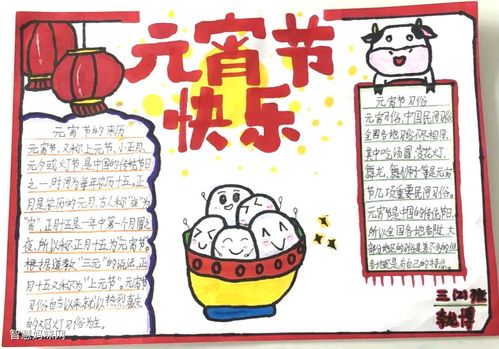 元宵节
快乐
元宵节的来历
元宵节,又称上元节,小正月,
元夕或灯节,是中国的传统节日
之一,时间为每年农历十五。正
月是农历的元月,古人称"夜"为
"宵",正月十五是一年中第一个月圆之
夜,所以称正月十五为元宵节。
根据道教"三元"的说法,正
月十五又称为"上元节"。元宵节
习俗自古以来就以热烈喜庆
的观灯习俗为主。
元宵节习俗
元宵习俗,中国民间习俗
全国各地习俗不尽相同,
其中吃汤圆,赏花灯,
舞龙,舞狮子等是元宵
节几项重要民间习俗。
元宵节是中国的传统节日,
所以全国各地者陆,大
部分地区的习俗是差不多的,但
各地还是有自己的特点。
三(2)班
智慧妈咪网